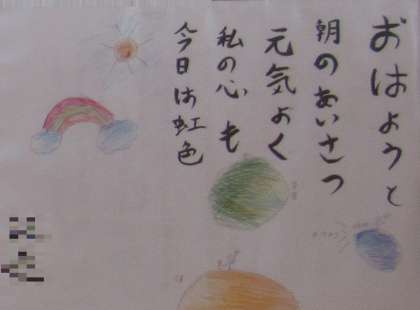 おはようと
朝のあいさつ
元気よく
私の心も
今日は虹色